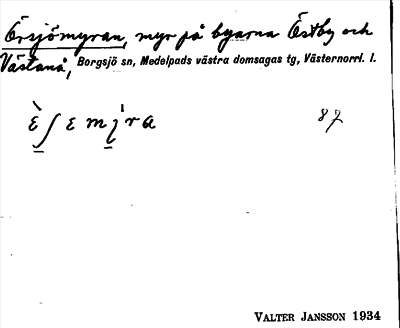 Örsjömyran, myr på byarna Östby och
Västanå, Borgsjö sn, Medelpads västra domsagas tg, Västernorrl. l.
87
VALTER JANSSON 1934